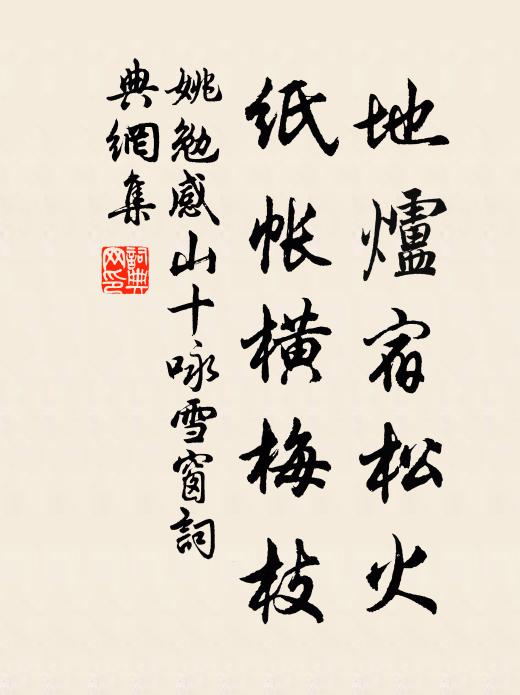 地爐宿松火
紙帳橫梅枝
姚勉感山十咏雪窗詞
典網集
詞典網印